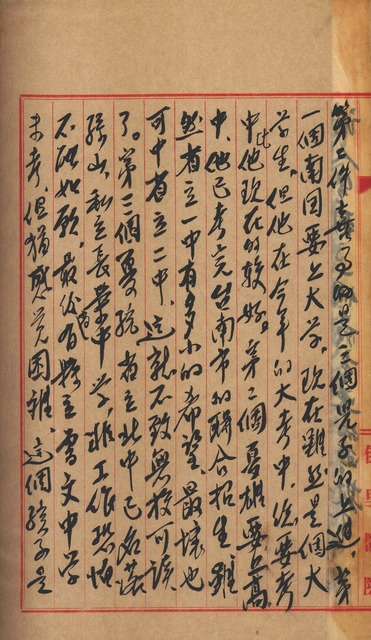 第二件喜事的是三個男子的上進，第
一個南圖要上大学，現在雖然是個大
学生，但他在今年的大考中，總要考
中比他現在的較好。第二個夏雄要上高
中，他已考完台南市的聯合招生，雖
然省立一中有多少的希望，最壞也
可中省立二中，這就不致無校可讀
了。第三個夏統省立北中已名落
孫山，私立長榮中学，非工作恐怕
不能如願，最後有務立實文中学
未考，但猶感覺困難，這個孩子是